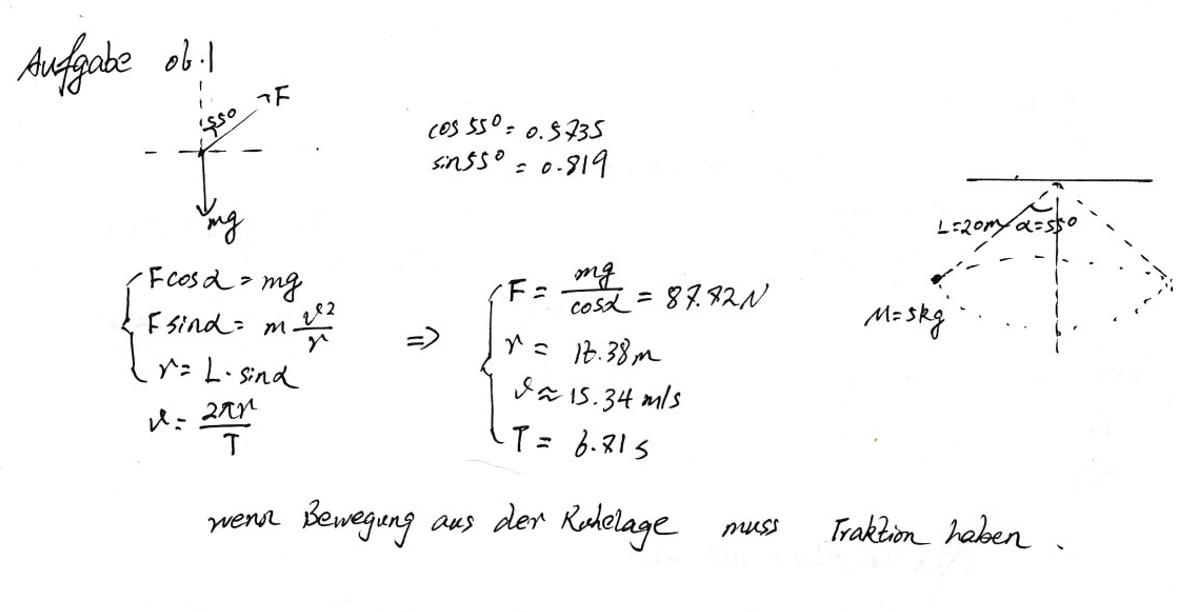 Aufgabe 06.1
55°
F
mg
cos 55° = 0.5735
sin 55° = 0.819
L=20m α=55°
M=5kg
F cos α = mg
F sin α = m v²/r
r = L · sin α
v = 2πr/T
⇒
F = mg/cosα = 87.82N
r = 16.38m
v ≈ 15.34 m/s
T = 6.81s
wenn Bewegung aus der Ruhelage muss Traktion haben .